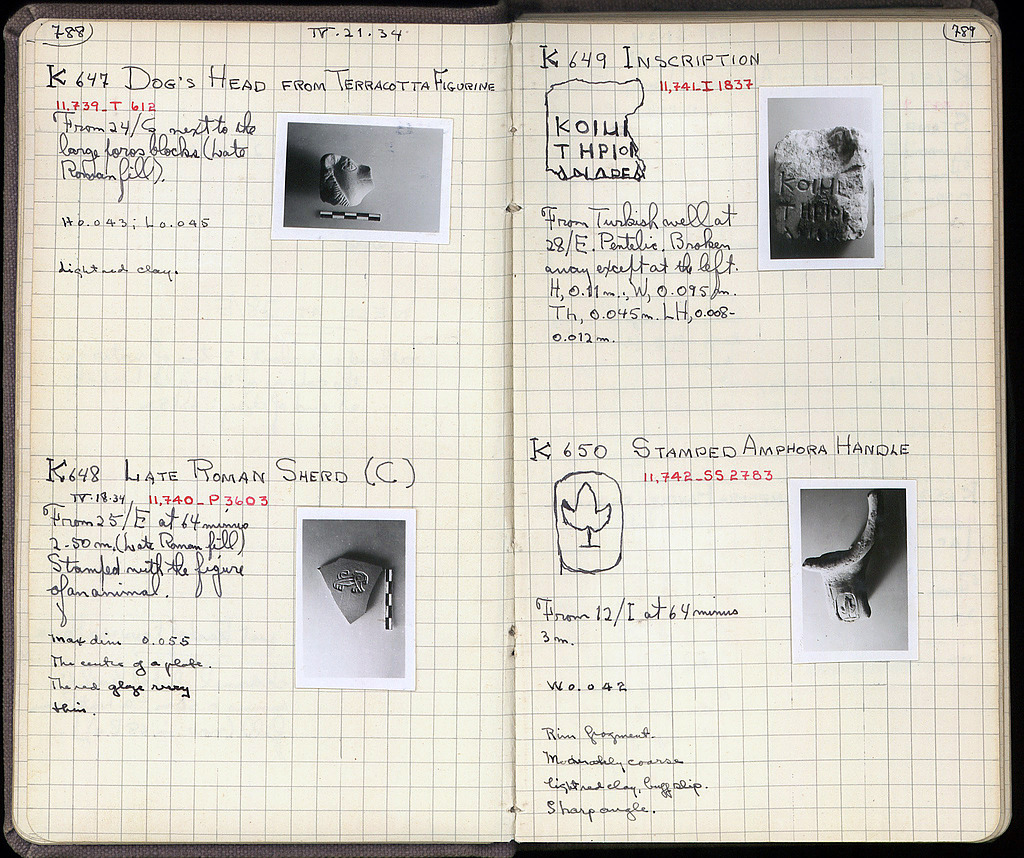 788
IV.21.34
K 647 DOG'S HEAD FROM TERRACOTTA FIGURINE
11,739_T 612
From 24/G next to the
large poros blocks (Late
Roman fill).
H 0.043; L 0.045
Light red clay.
K 648 LATE ROMAN SHERD (C)
IV.18.34
11,740_P 3603
From 25/E at 64 minus
2.50 m. (Late Roman fill)
Stamped with the figure
of an animal.
Max dim 0.055
The centre of a plate.
The red glaze very
thin.
789
K 649 INSCRIPTION
11,741_I 1837
ΚΟΙΜΙ
ΤΗΡΙΟΝ
ΑΝΔΡΕΑ
ΚΟΙΜ
ΤΗΡΙΟΝ
From Turkish well at
28/E. Pentelic. Broken
away except at the left.
H, 0.11 m.; W, 0.095 m.
Th, 0.045 m. LH, 0.008-
0.012 m.
K 650 STAMPED AMPHORA HANDLE
11,742_SS 2783
From 12/I at 64 minus
3 m.
W 0.042
Rim fragment.
Moderately coarse
light red clay, buff slip.
Sharp angle.